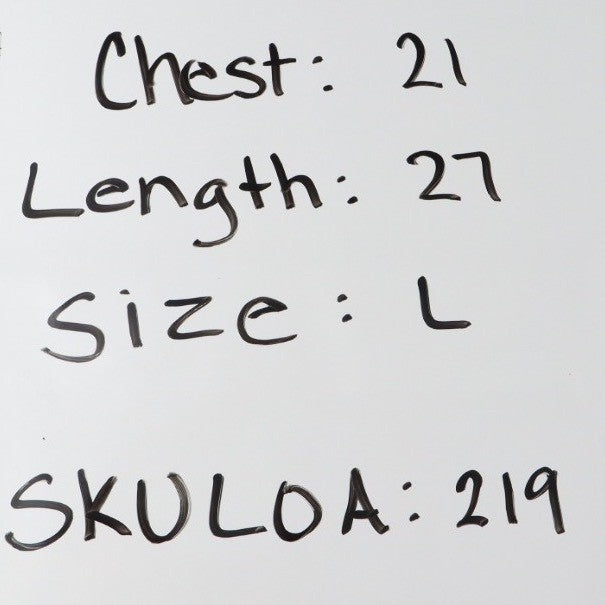 Chest: 21
Length: 27
Size: L
SKULOA: 219